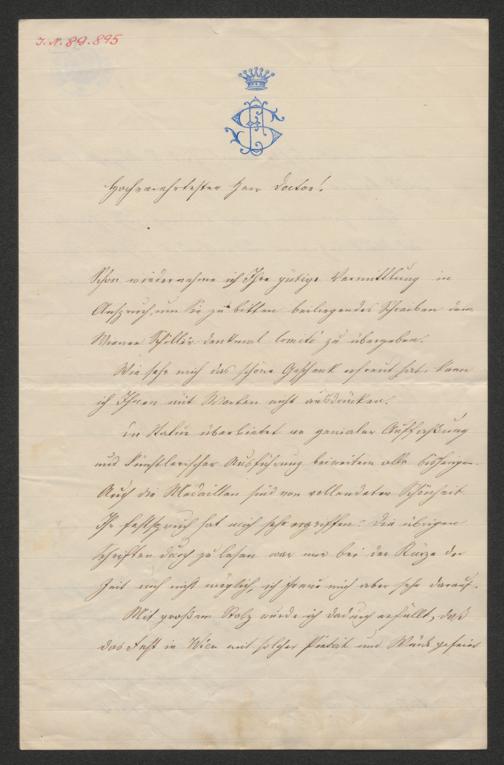 J. N. 89.895
Hochverehrtester Herr Doctor!
Schon wieder nehme ich Ihre gütige Vermittlung in
Anspruch, um Sie zu bitten beiliegendes Schreiben dem
Wiener Schiller denkmal Comité zu übergeben.
Wie sehr mich das schöne Geschenk erfreut hat, kann
ich Ihnen mit Worten nicht ausdrücken.
Die Statue überbietet an genialer Auffaßung
und künstlerischer Ausführung beiweitem alle bisherigen.
Auch die Medaillen sind von vollendeter Schönheit.
Ihr Festspruch hat mich sehr ergriffen. Die übrigen
Schriften durch zu lesen war mir bei der Kürze der
Zeit noch nicht möglich, ich freue mich aber sehr darauf.
Mit großem Stolz wurde ich dadurch erfüllt, daß
das Fest in Wien mit solcher Pietät und Würde gefeiert